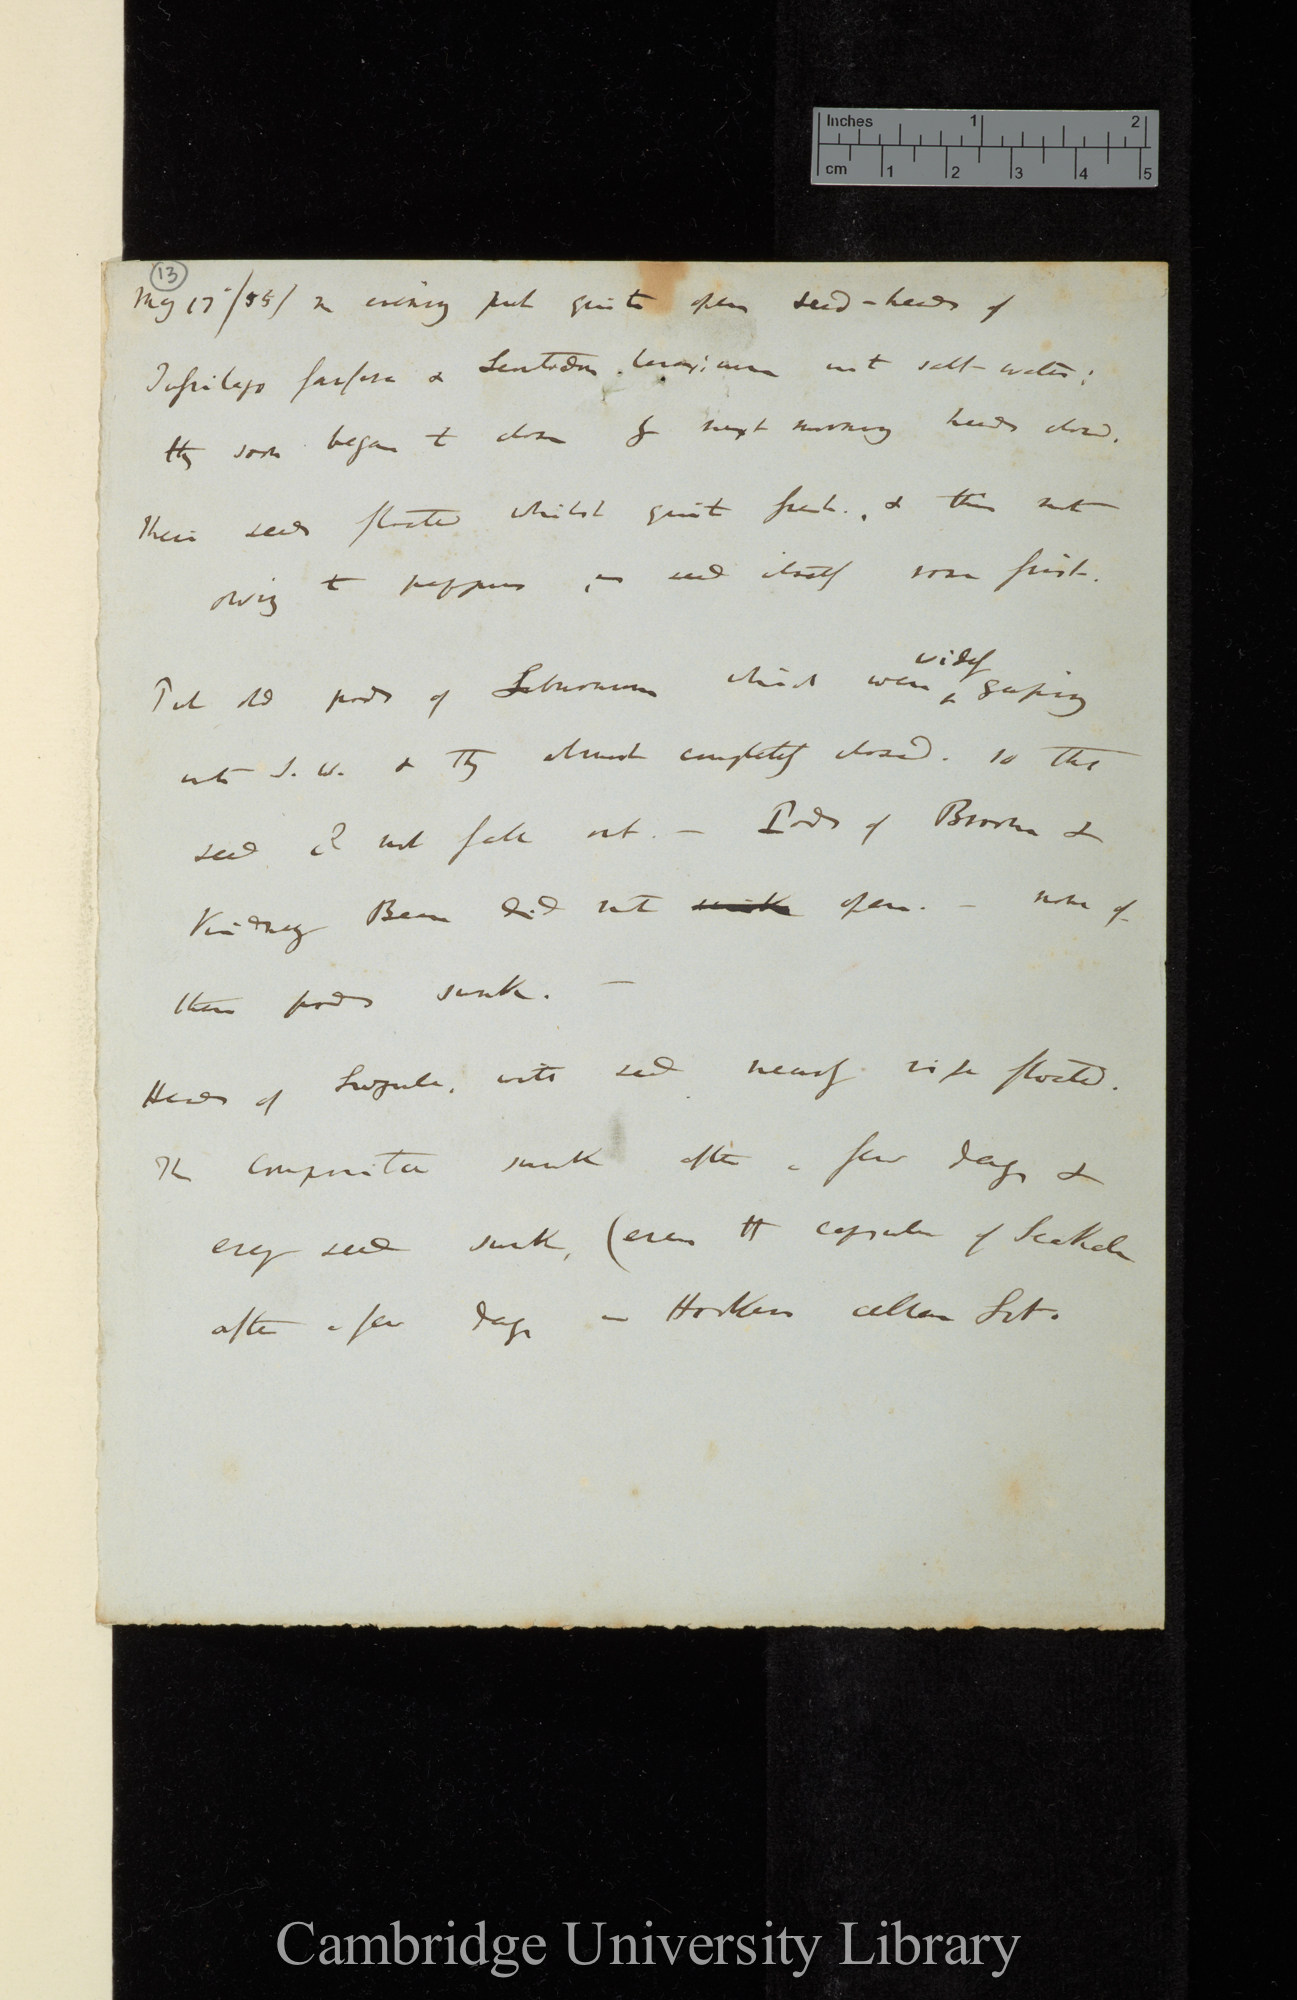 Inches 1 2
cm 1 2 3 4 5
13
May 17/55/ In evening put quite open seed-heads of
Tussilago farfara & Leontodon taraxicum into salt-water;
they soon began to close & next morning heads closed.
Their seeds floated whilst quite fresh, & this not
owing to pappus, as seed itself rose first.
Put old pods of Laburnum which were widely gaping
into S. W. & they almost completely closed. so that
seed cd not fall out. — Pods of Broom &
Kidney Bean did not sink open. — none of
these pods sunk. —
Heads of Luzula, with seed nearly ripe floated.
The Compositæ sunk after a few days &
every seed sunk, (even the capsules of Seakale
after a few days — Hookers
Cambridge University Library